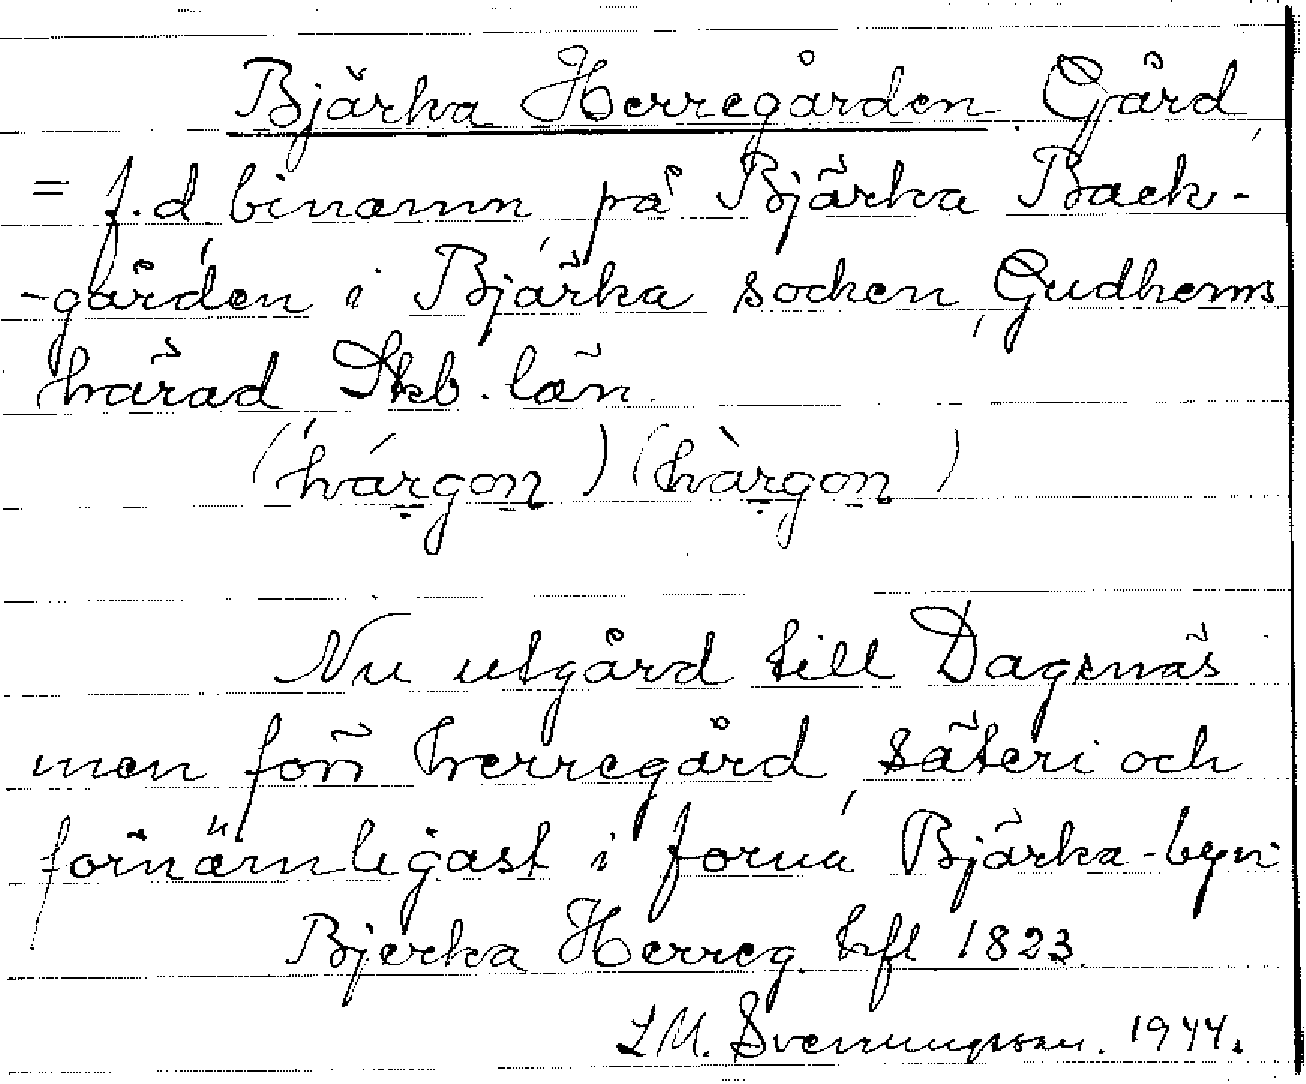 Bjärka Herregården. Gård,
= f.d. binamn på Bjärka Back-
-gården i Bjärka socken, Gudhems
härad Skb. län.
(hárgon) (hàrgon)
Nu utgård till Dagsnäs
men förr herregård, säteri och
förnämligast i forna Bjärka-byn
Bjerka Herreg. hfl 1823.
L M. Svenungsson. 1944.